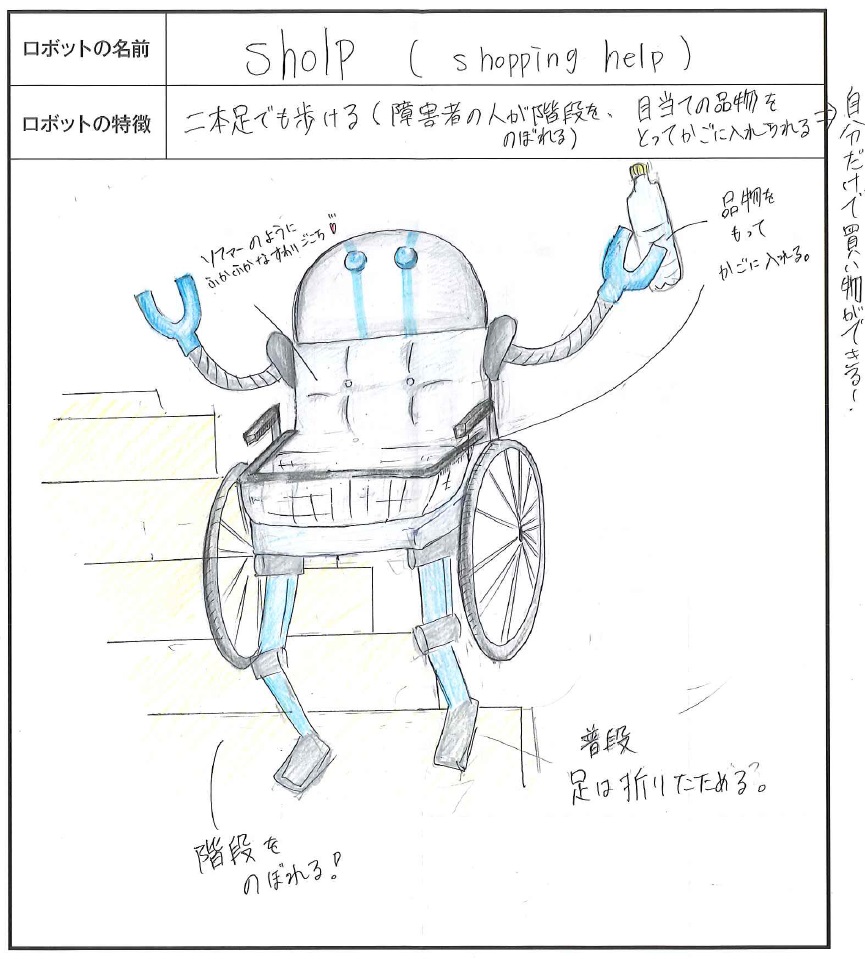 ロボットの名前
sholp ( shopping help )
ロボットの特徴
二本足でも歩ける(障害者の人が階段を、
のぼれる)
目当ての品物を
とってかごに入れられる⇒
自分だけで買い物ができる!
ソファーのように
ふかふかなすわりごこち♥
品物を
もって
かごに入れる。
普段
足は折りたためる。
階段を
のぼれる!